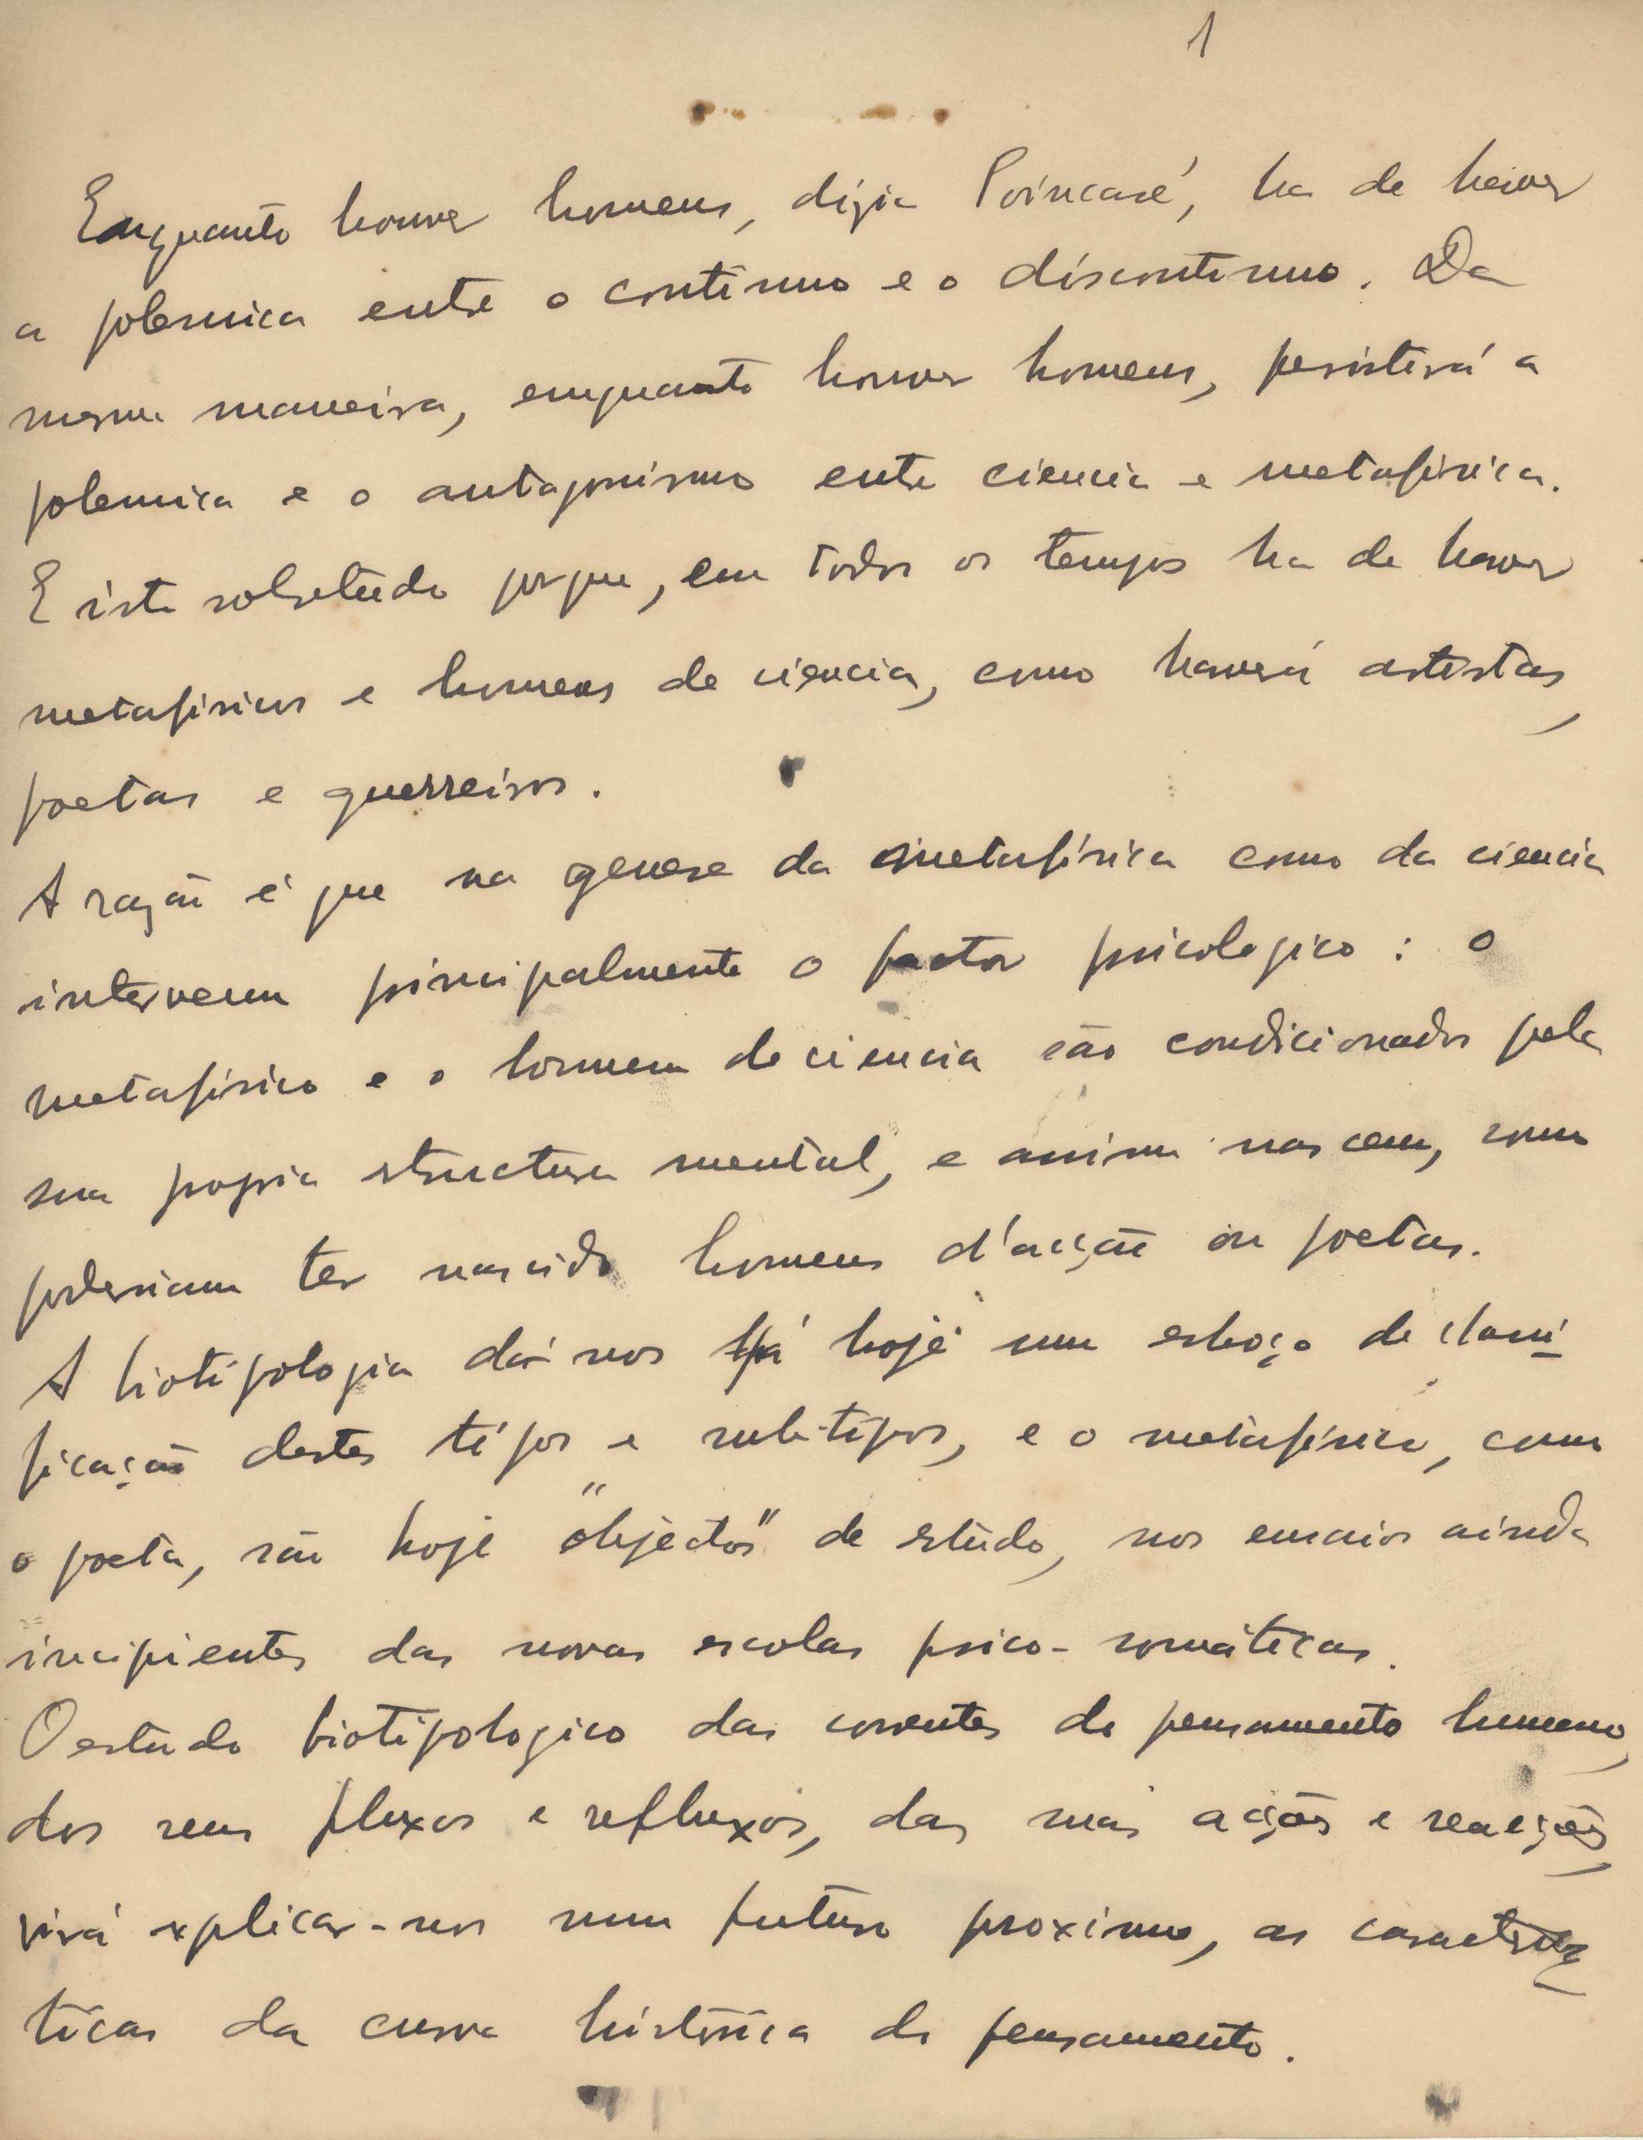 1
Emquanto houver homens, dizia Poincaré, ha de haver
a polemica entre o continuo e o discontinuo. Da
mesma maneira, emquanto houver homens, persistirá a
polemica e o antagonismo entre ciencia e metafisica.
E isto sobretudo porque, em todos os tempos ha de haver
metafisicos e homens de ciencia, como haverá artistas,
poetas e guerreiros.
A razão é que na genese da metafisica como da ciencia
intervem principalmente o factor psicologico: o
metafisico e o homem de ciencia são condicionados pela
sua propria structura mental, e assim nascem, como
poderiam ter nascido homens d'acção ou poetas.
A biotipologia dá-nos já hoje um esboço de classi
ficação destes tipos e sub-tipos, e o metafisico, como
o poeta, são hoje "objectos" de estudo, nos ensaios ainda
incipientes das novas escolas psico-somáticas.
O estudo biotipologico das correntes do pensamento humano,
dos seus fluxos e refluxos, das suas acções e reacções,
virá explicar-nos num futuro proximo, as caracteris
ticas da curva histórica do pensamento.